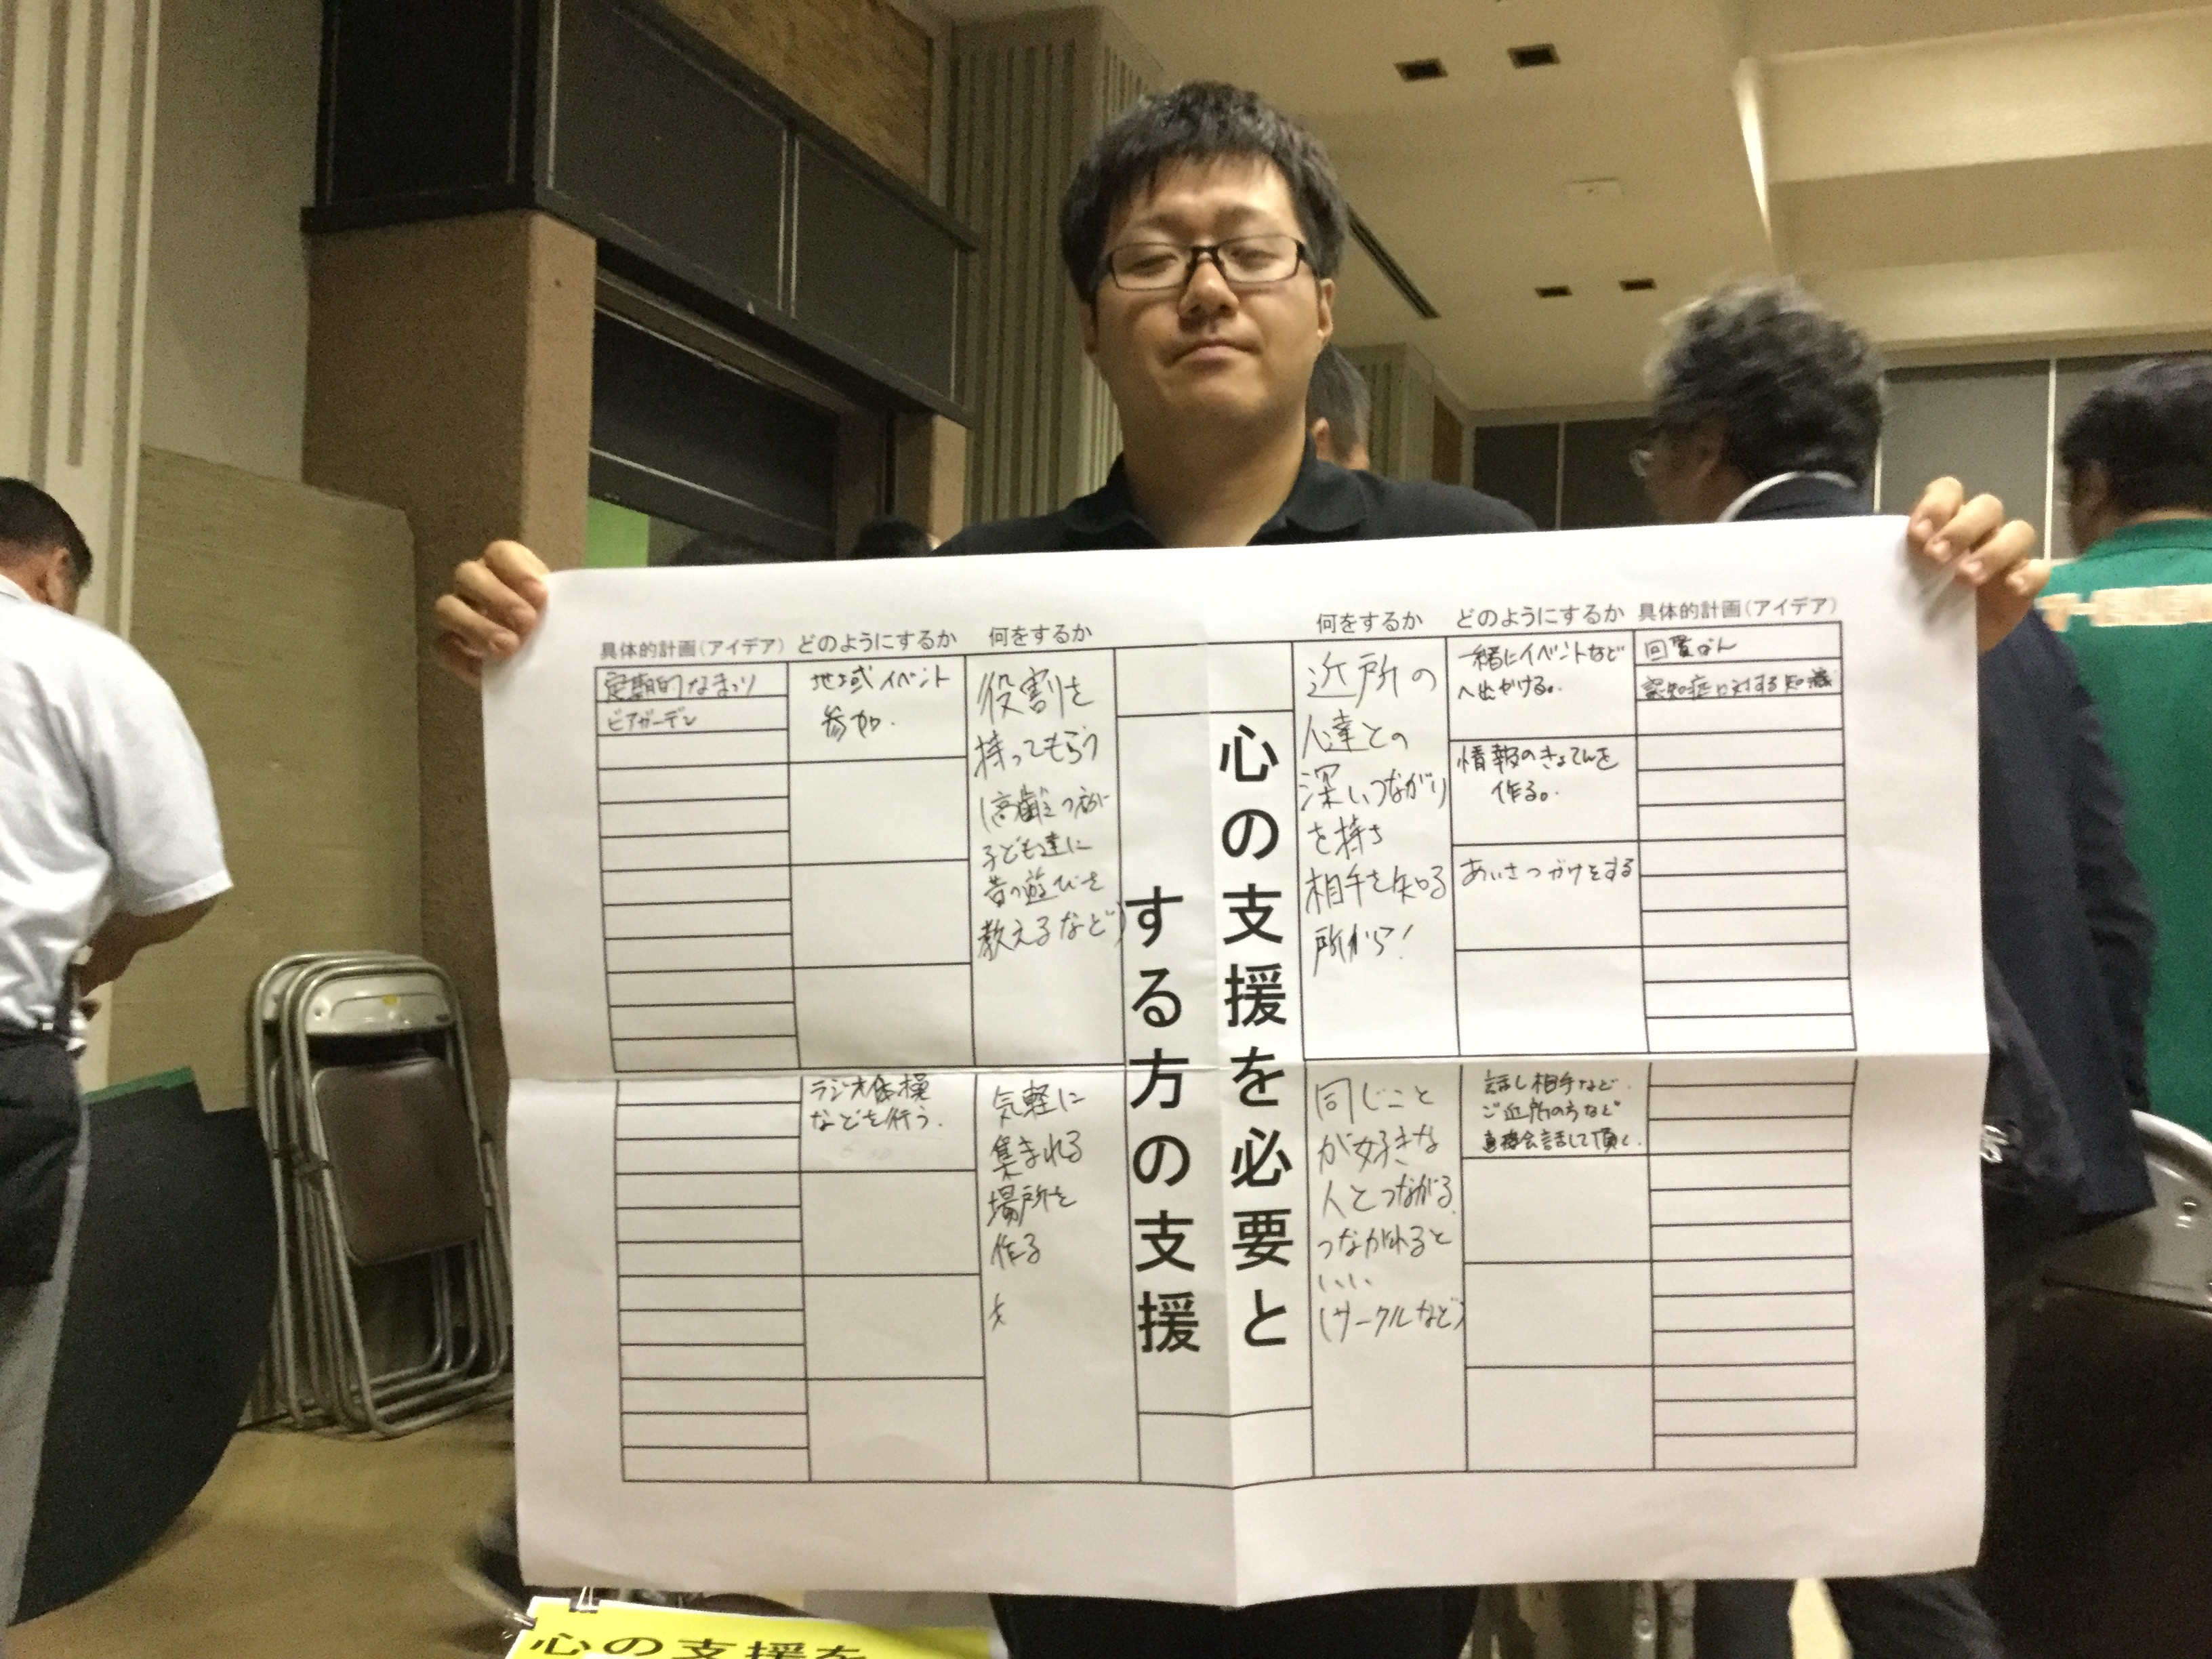 具体的計画(アイデア)
どのようにするか
何をするか
何をするか
どのようにするか
具体的計画(アイデア)
心の支援を必要と
する方の支援
定期的なまつり
ビアガーデン
地域イベント
参加.
役割を
持ってもらう
(高齢
子ども達に
昔の遊びを
教えるなど)
近所の
人達との
深いつながり
を持ち
相手を知る
所から!
一緒にイベントなど
へ出かける。
情報のきょてんを
作る。
あいさつがけをする
回覧ばん
認知症に対する知識
ラジオ体操
などを行う.
気軽に
集まれる
場所を
作る
同じこと
が好きな
人とつながる.
つながれると
いい
(サークルなど)
話し相手など.
ご近所の方など
直接会話して頂く.
心の支援を